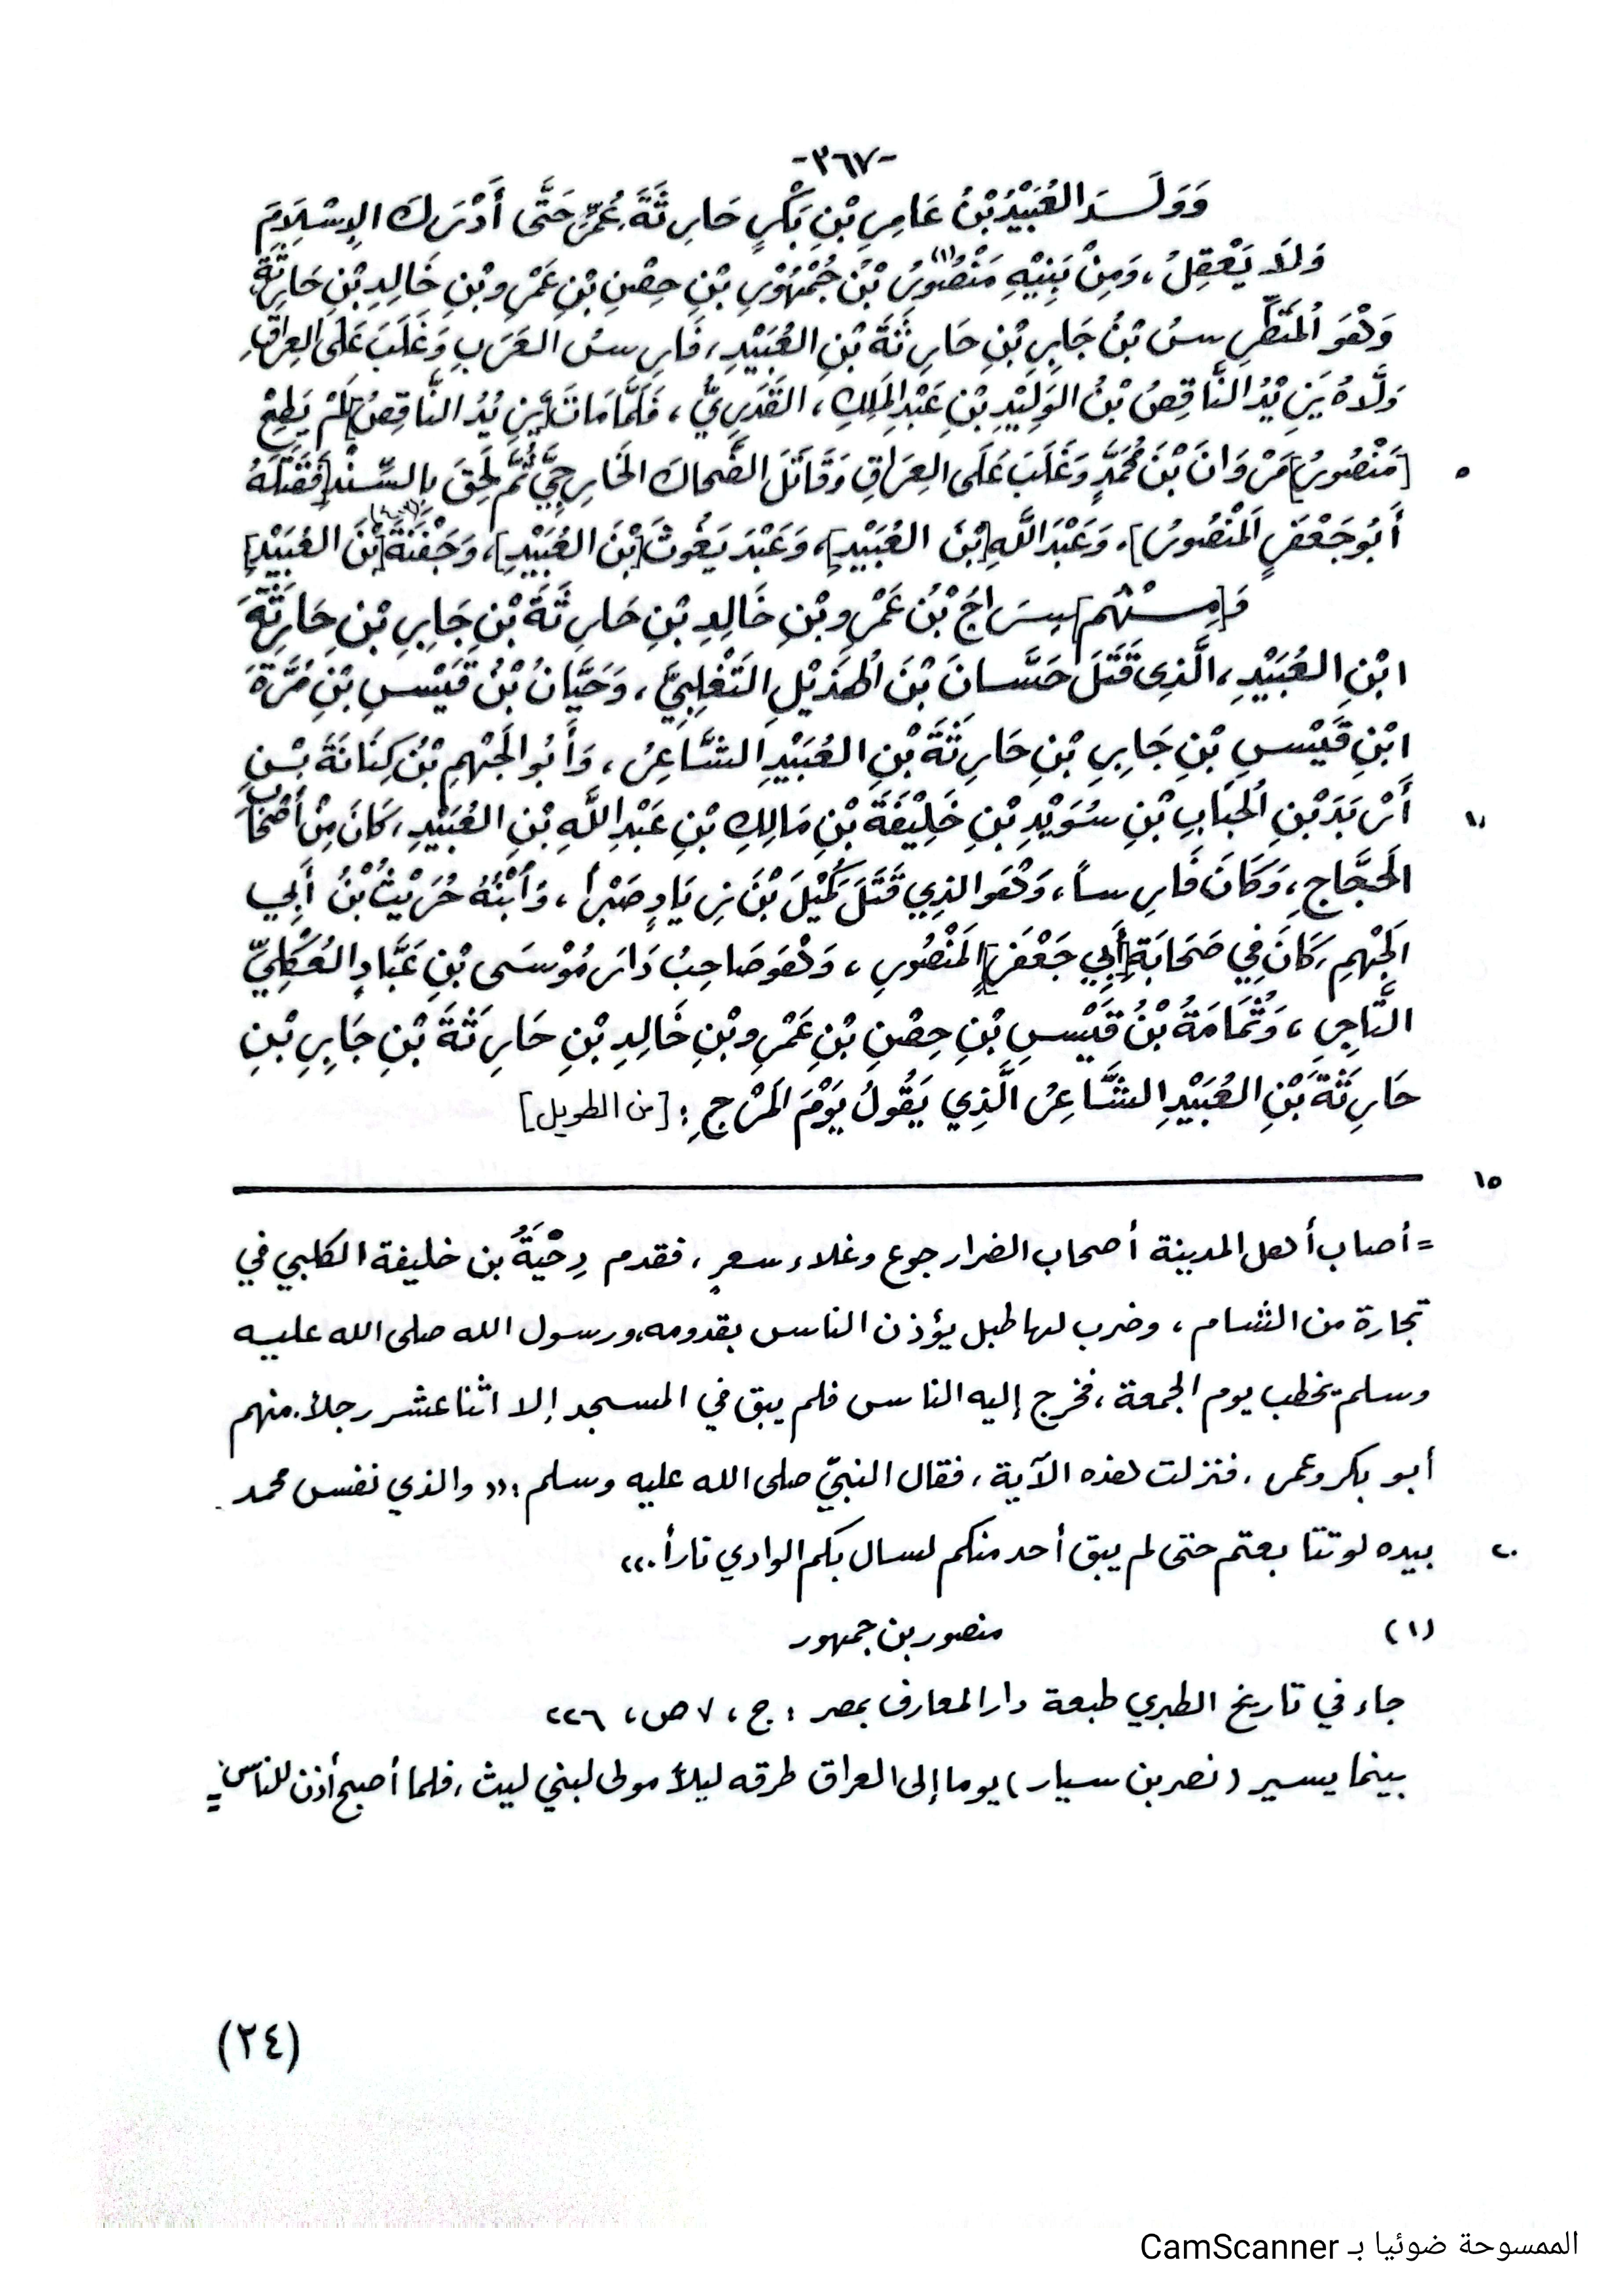 -٣٦٧-
وَوَلَـــدَ العُبَيْدُ بْنُ عَامِرِ بْنِ بَكْرٍ حَارِثَةَ، عُمِّرَ حَتَّى أَدْرَكَ الإِسْلَامَ
وَلَا يَعْقِلُ، وَمِنْ بَنِيْهِ مَنْصُورُ (١) بْنُ جُمْهُوْرِ بْنِ حِصْنِ بْنِ عَمْرِو بْنِ خَالِدِ بْنِ حَارِثَةَ
وَهْوَ المُتَمَطِّرِسُ بْنُ جَابِرِ بْنِ حَارِثَةَ بْنِ العُبَيْدِ، فَارِسُ العَرَبِ وَغَلَبَ عَلَى العِرَاقِ
وَلَّاهُ يَزِيْدُ النَّاقِصُ بْنُ الوَلِيْدِ بْنِ عَبْدِ المَلِكِ، القَدَرِيُّ، فَلَمَّا مَاتَ [يَزِيْدُ النَّاقِصُ] لَمْ يَطِعْ
[مَنْصُورُ] مَرْوَانَ بْنَ مُحَمَّدٍ وَغَلَبَ عَلَى العِرَاقِ وَقَاتَلَ الضَّحاكَ الخَارِجِيَّ ثُمَّ لَحِقَ بِالسِّنْدِ [فَقَتَلَهُ
٥
أَبُو جَعْفَرٍ المَنْصُورُ]، وَعَبْدَ اللهِ [بْنَ العُبَيْدِ]، وَعَبْدَ يَغُوثَ [بْنَ العُبَيْدِ]، وَجَفْنَةَ [بْنَ العُبَيْدِ]
فَـ [مِـــنْهُم] سِرَاجُ بْنُ عَمْرِو بْنِ خَالِدِ بْنِ حَارِثَةَ بْنِ جَابِرِ بْنِ حَارِثَةَ
ابْنِ العُبَيْدِ، الَّذِي قَتَلَ حَسَّانَ بْنَ الهُذَيْلِ التَغْلِبِيَّ، وَحَيَّانُ بْنُ قَيْسِ بْنِ مُرَّةَ
ابْنِ قَيْسِ بْنِ جَابِرِ بْنِ حَارِثَةَ بْنِ العُبَيْدِ الشَّاعِرُ، وَأَبُو الجَهْمِ بْنُ كِنَانَةَ بْنِ
أَرْبَدَ بْنِ الحُبَابِ بْنِ سُوَيْدِ بْنِ خَلِيْفَةَ بْنِ مَالِكِ بْنِ عَبْدِ اللهِ بْنِ العُبَيْدِ، كَانَ مِنْ أَصْحَابِ
١٠
الحَجَّاجِ، وَكَانَ فَارِساً، وَهْوَ الذِي قَتَلَ كُمَيْلَ بْنَ زِيَادٍ صَبْراً، وَابْنُهُ حُرَيْثُ بْنُ أَبِي
الجَهْمِ كَانَ فِي صَحَابَةِ [أَبِي جَعْفَرٍ] المَنْصُورِ، وَهْوَ صَاحِبُ دَارِ مُوْسَى بْنِ عَبَّادٍ العُكْلِيِّ
التَّاجِرِ، وَثُمَامَةُ بْنُ قَيْسِ بْنِ حِصْنِ بْنِ عَمْرِو بْنِ خَالِدِ بْنِ حَارِثَةَ بْنِ جَابِرِ بْنِ
حَارِثَةَ بْنِ العُبَيْدِ الشَّاعِرُ الَّذِي يَقُولُ يَوْمَ المَرْجِ: [من الطويل]
١٥
= أصاب أهل المدينة أصحاب الضرار جوع وغلاء سعرٍ، فقدم دِحْيَةُ بن خليفة الكلبي في
تجارة من الشام، وضرب لها طبل يؤذن الناس بقدومه، ورسول الله صلى الله عليه
وسلم يخطب يوم الجمعة، فخرج إليه الناس فلم يبق في المسجد إلا اثنا عشر رجلاً. منهم
أبو بكر وعمر، فنزلت هذه الآية، فقال النبيّ صلى الله عليه وسلم: «والذي نفس محمد
بيده لو تتابعتم حتى لم يبق أحد منكم لسال بكم الوادي ناراً.»
٢٠
(١) منصور بن جمهور
جاء في تاريخ الطبري طبعة دار المعارف بمصر: ج، ٧ ص، ٢٢٦
بينما يسير (نصر بن سيار) يوما إلى العراق طرقه ليلاً مولى لبني ليث، فلما أصبح أذن للناس =
(٢٤)
الممسوحة ضوئيا بـ CamScanner